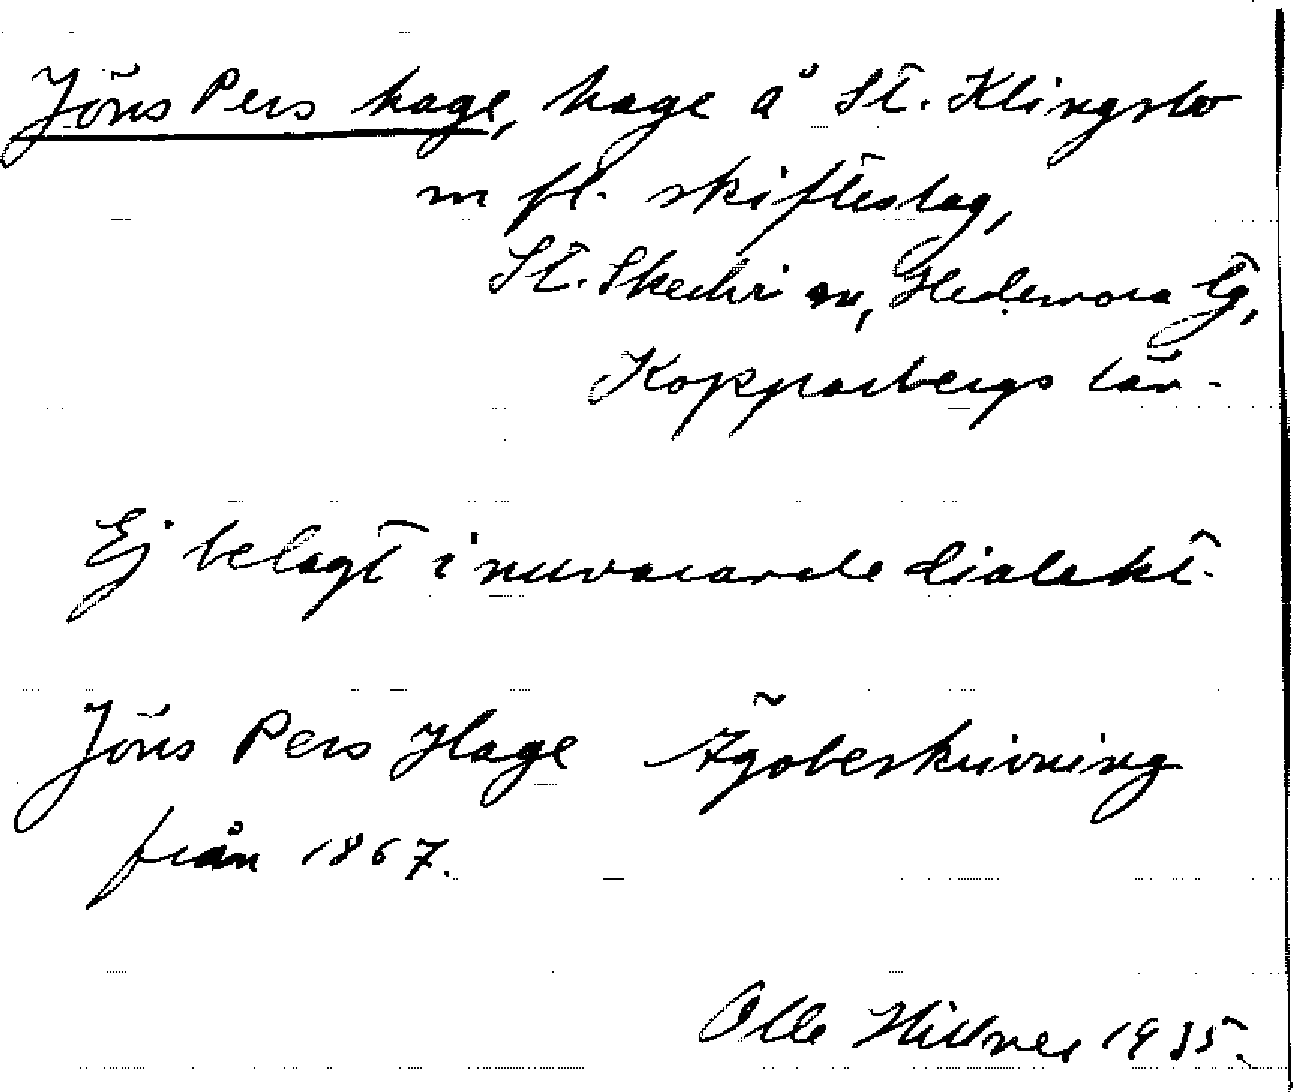 Jöns Pers hage, hage å St. Klingsbo
m fl. skifteslag,
St. Skedvi sn, Hedemora tg,
Kopparbergs län.
Ej belagt i nuvarande dialekt.
Jöns Pers Hage Ägobeskrivning
från 1867.
Olle Hillner 1935.